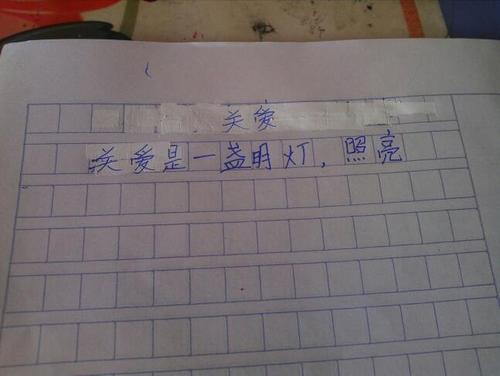 关爱
关爱是一盏明灯，照亮